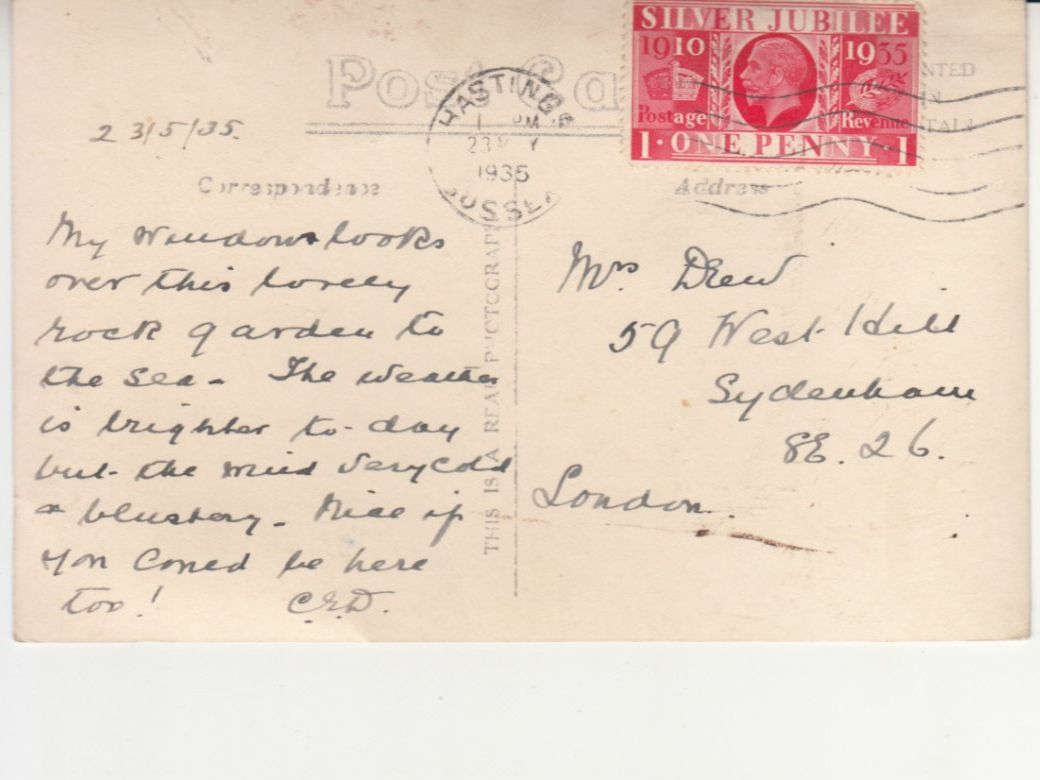 SILVER JUBILEE
1910 1935
Postage Revenue
1·ONE PENNY 1
Post Ca
NTED
IN
TAIN
HASTINGS
1 PM
23 MY
1935
SUSSEX
23/5/35.
Correspondence
Address
My window looks
over this lovely
rock garden to
the sea - The weather
is brighter to-day
but the wind very cold
& blustery - Nice if
you could be here
too! C.E.D.
THIS IS A REAL PHOTOGRAPH
Mrs Drew
59 West Hill
Sydenham
SE. 26.
London.